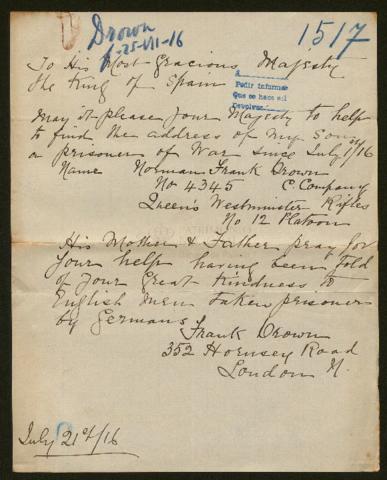 Drown
f-25-VII-16
1517
To His Most Gracious Majesty
the King of Spain
A
Pedir informes
Que se hace así
Devolver
May it please your Majesty to help
to find the address of my Son
a prisoner of War since July 1st/16
Name Norman Frank Drown
No 4345 C Company
Queen's Westminster Rifles
No 12 Platoon
His Mother & Father pray for
your help having been told
of your Great Kindness to
English men taken prisoner
by Germans
Frank Drown
352 Hornsey Road
London N.
July 21st/16